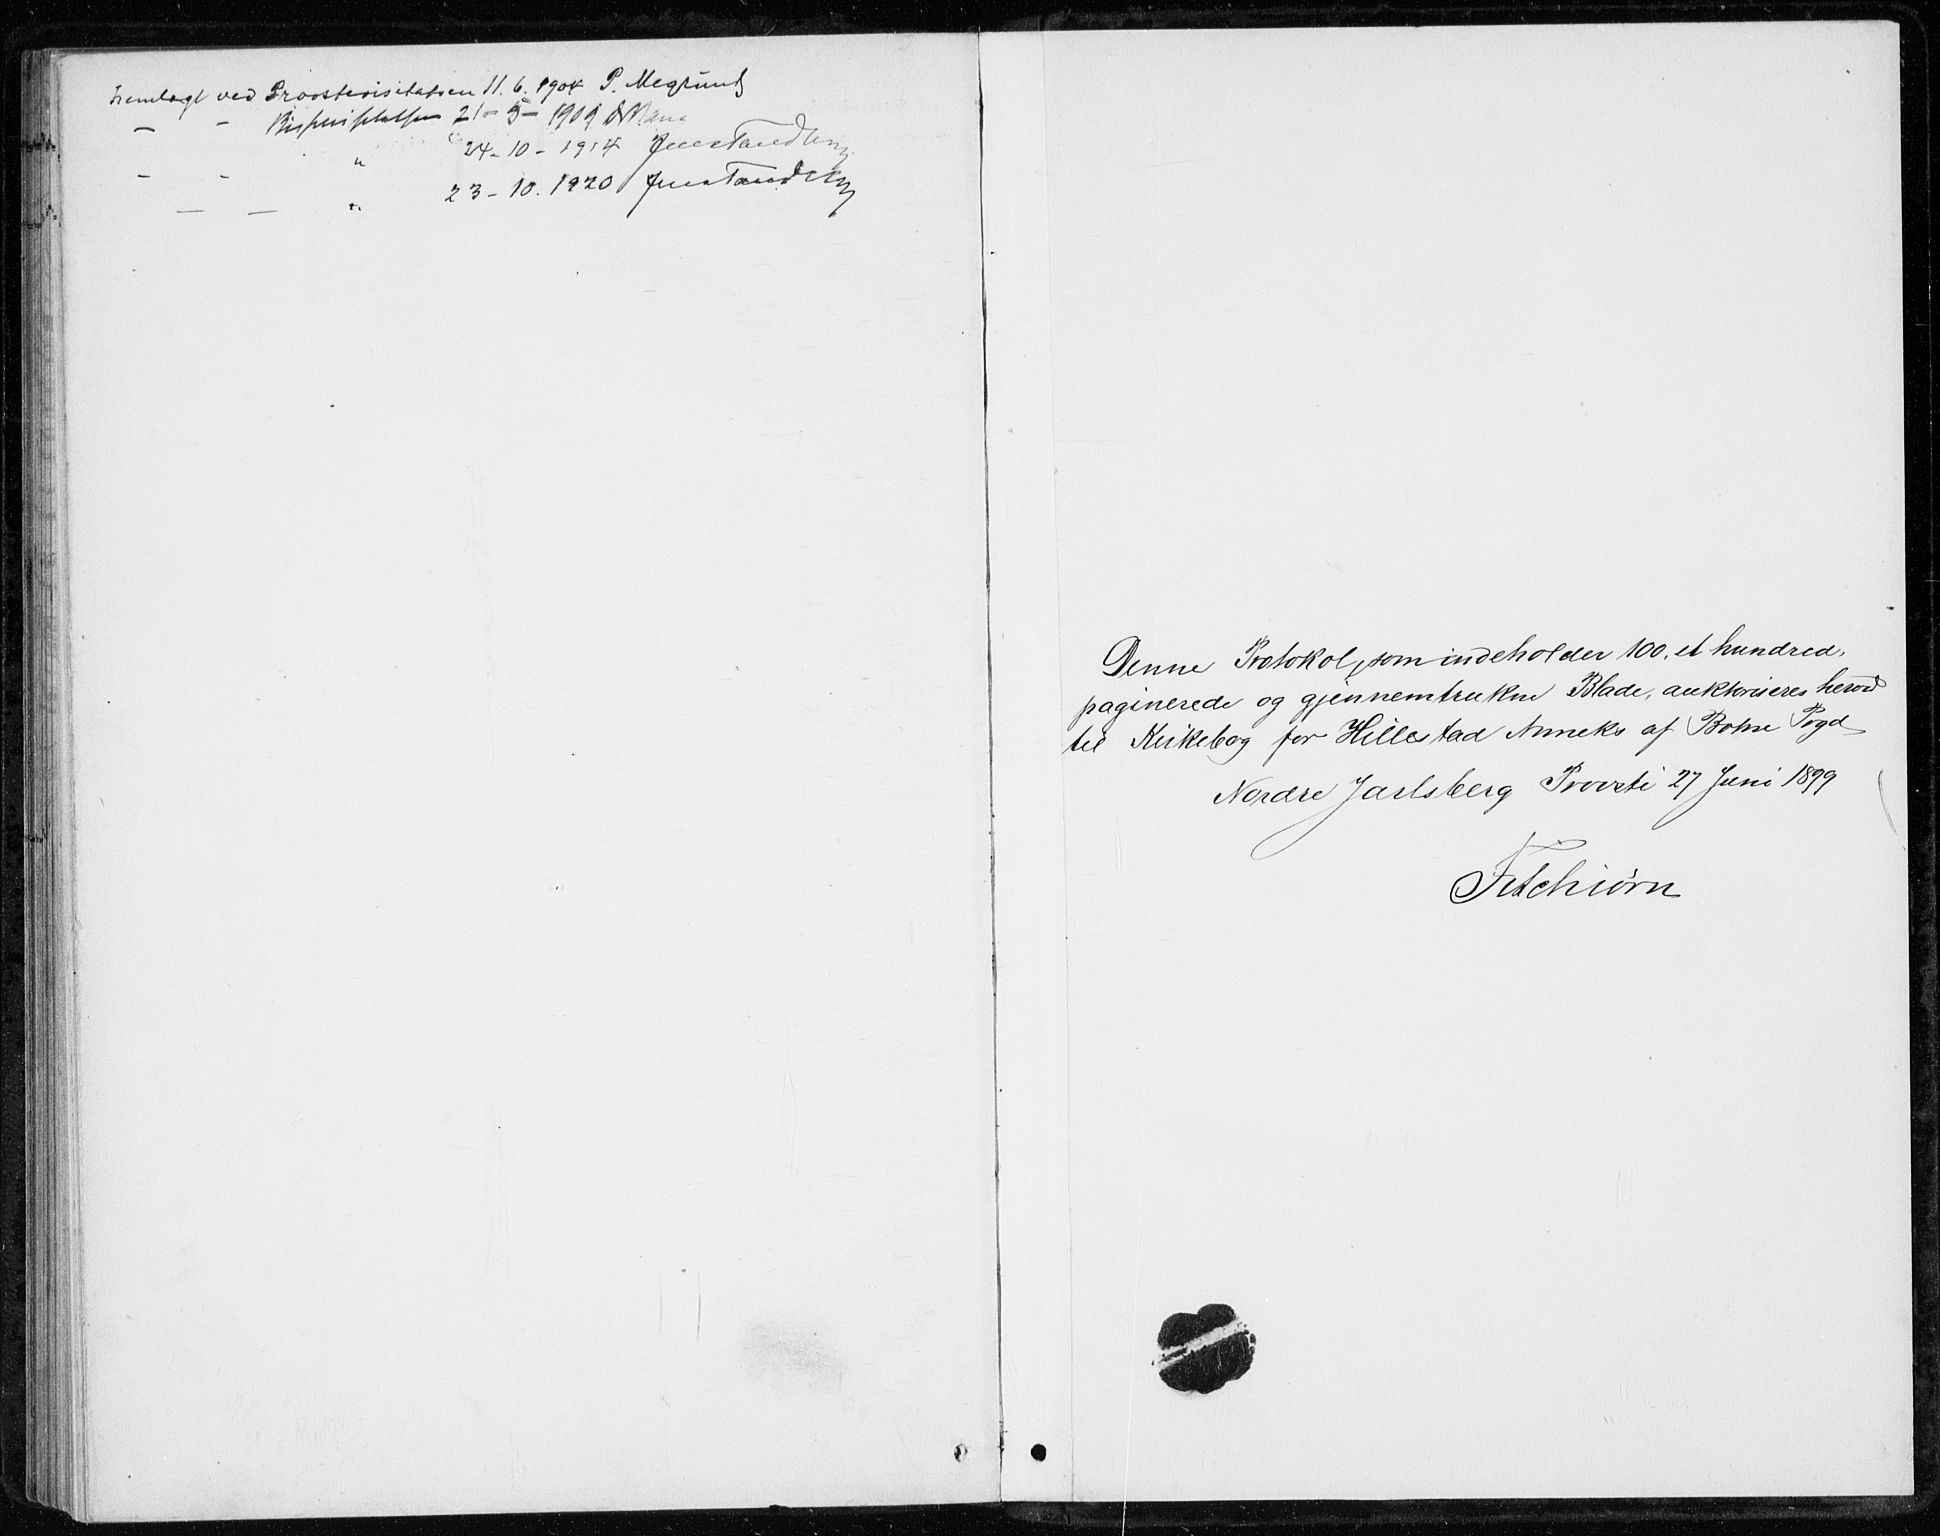 Fremlagt ved Provstevisitatsen 11. 6. 1904 P.
— - Bispevisitatsen 21-5-1909
- - " 24-10-1914 Jens Tandberg
— — " 23-10.1920 Jens Tandberg
Denne Protokol, som indeholder 100, et hundred,
paginerede og gjennemtrukne Blade, auktoriseres herved
til Kirkebog for Hillestad Anneks af Botne Prgd
Nordre Jarlsberg Provsti 27 Juni 1899